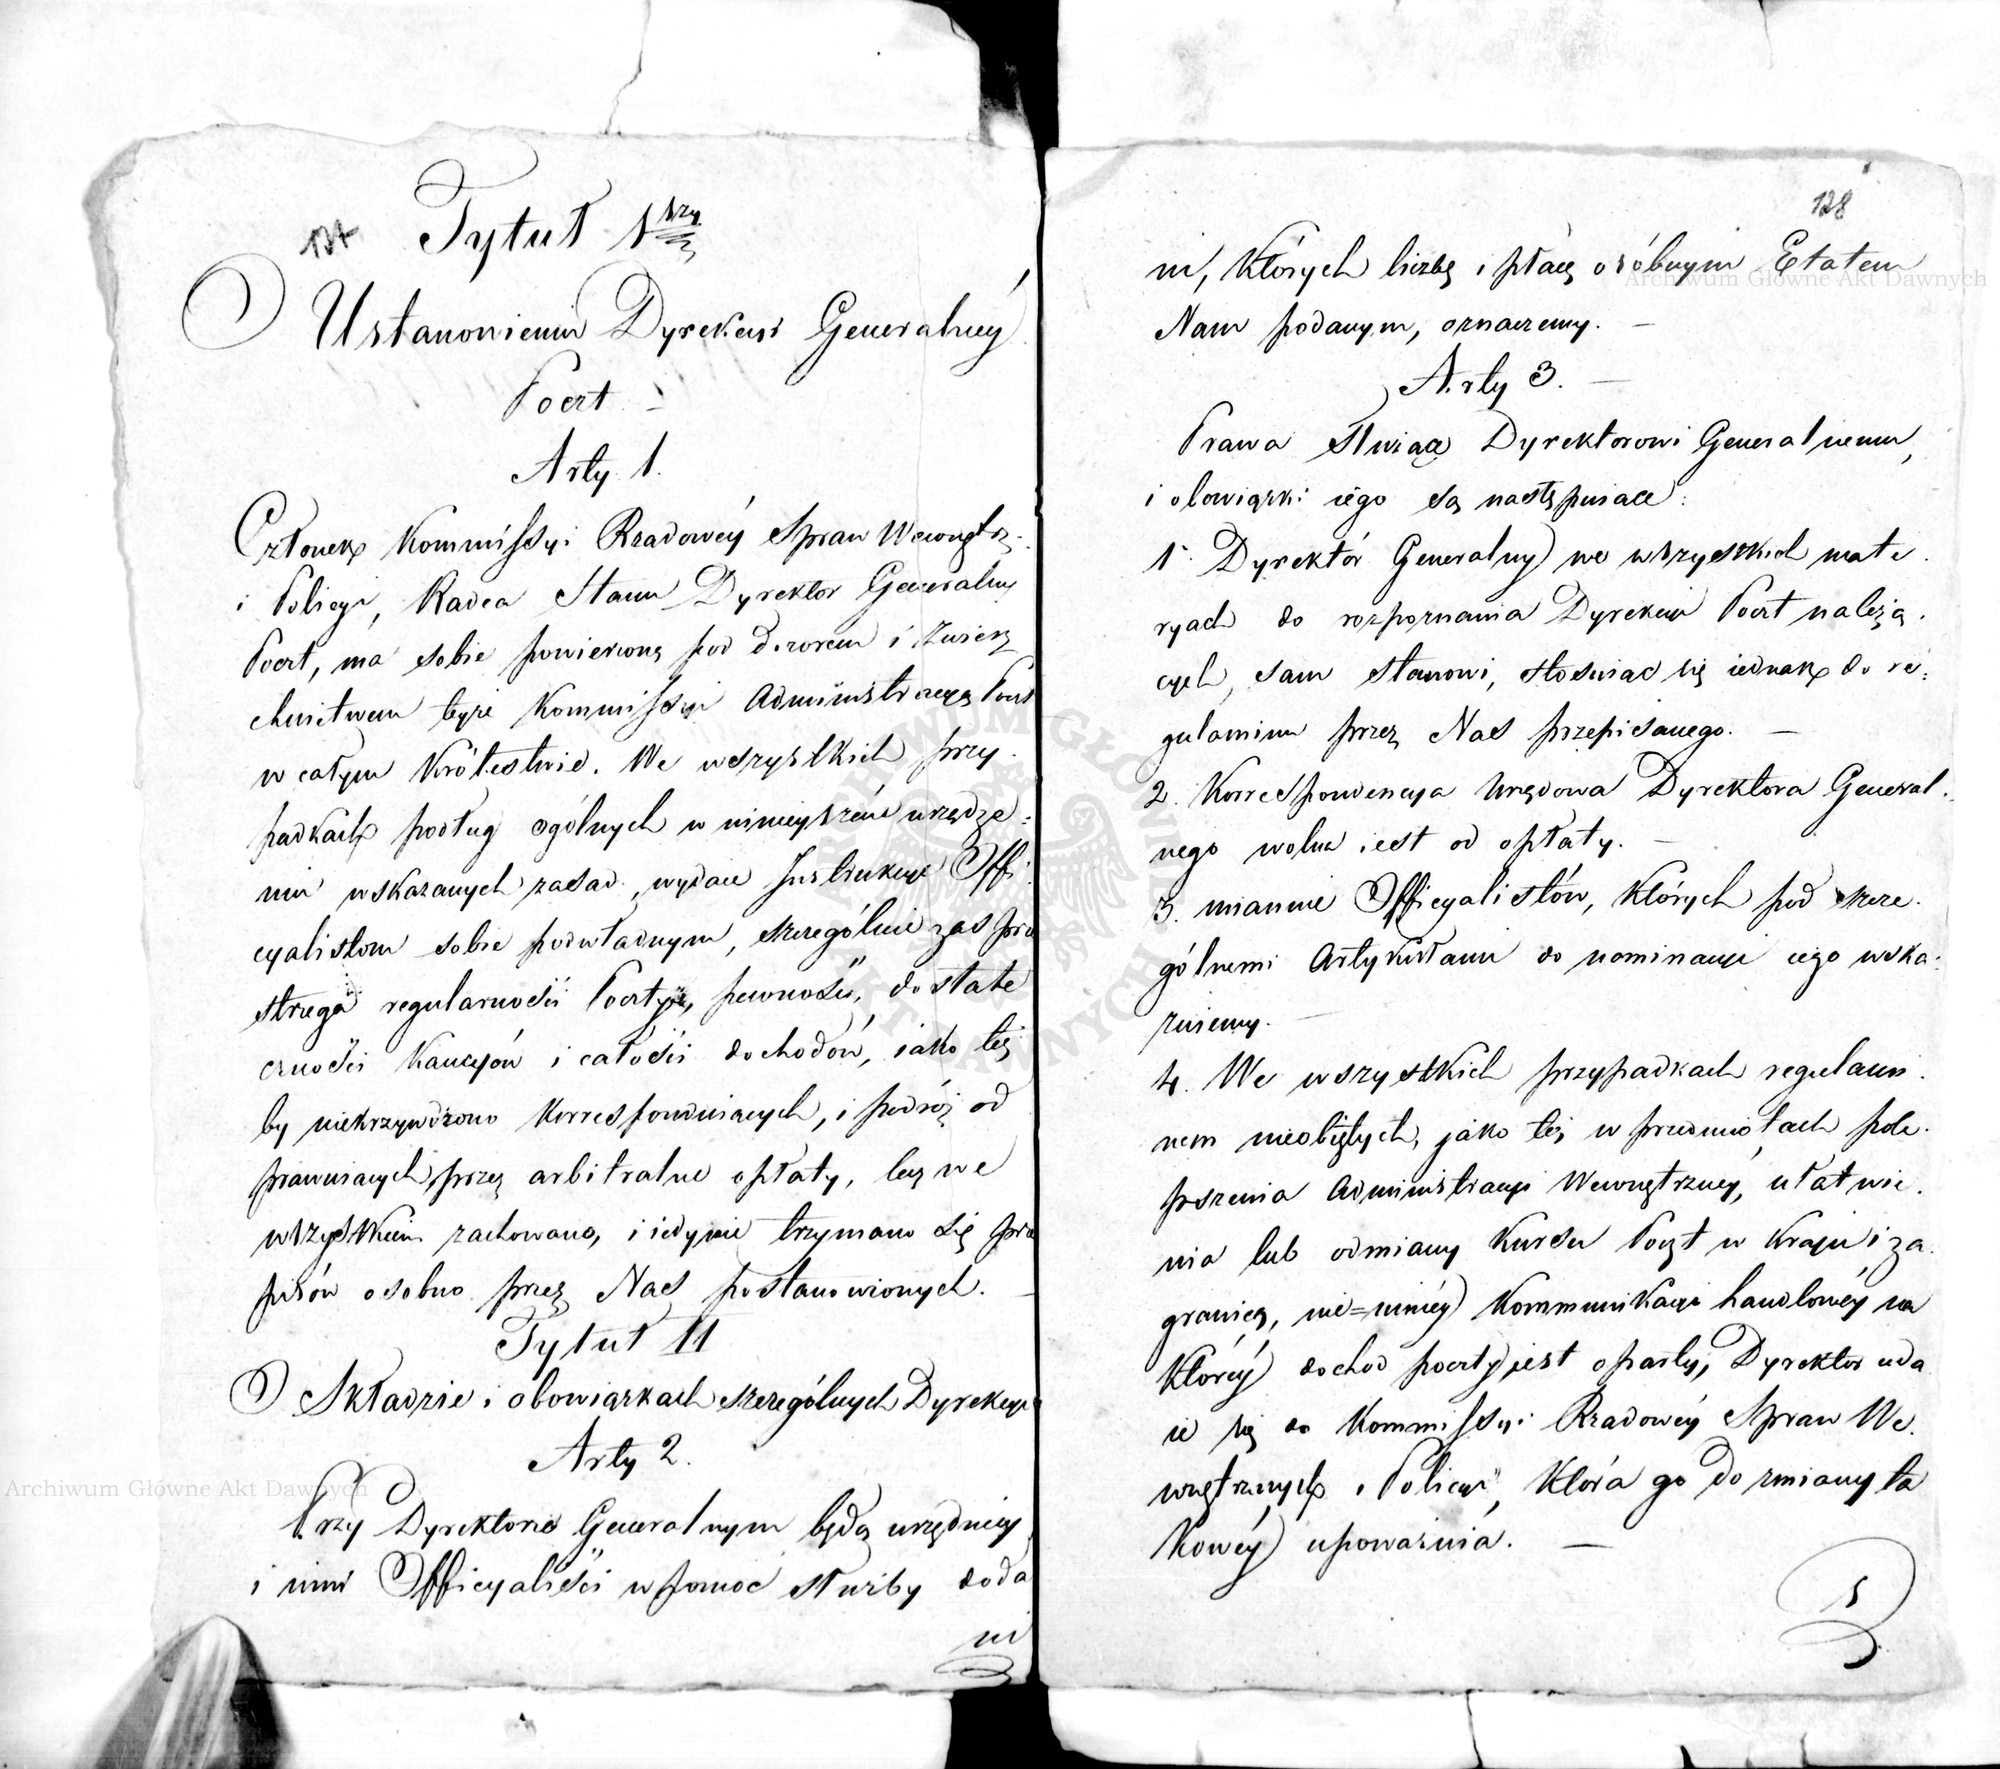 127
Tytuł 1szy
O Ustanowieniu Dyrekcyi Generalnéy
Poczt.
Arty 1.
Członek Kommissyi Rządowéy Spraw Wewnętrz:
i Policyi, Radca Stanu Dyrektor Generalny
Poczt, ma sobie powierzoną pod dozorem i Zwierz
chnictwem teyże Kommissyi Administracyą Poczt
w całym Królestwie. We wszystkich przy
padkach podług ogólnych w ninieyszém urządze:
niu wskazanych zasad, wydaie Instrukcye Offi
cyalistom sobie podwładnym, szczególnie zas prze
strzega regularności Poczty, pewności, dostate
czności Kaucyów i całości dochodów, iako też
by niekrzywdzono Korrespondujących, i podróż od
prawuiących przez arbitralne opłaty, lecz we
wszystkiem zachowano, i iedynie trzymano się prze
pisów osobno przez Nas postanowionych.
Tytuł II
O Składzie i obowiązkach szczególnych Dyrekcyi
Arty 2.
Przy Dyrektorze Generalnym będą urzędnicy
i inni Officyaliści w pomoc służby doda
ni
128
ni, Których liczbę i płacę osóbnym Etatem
Nam podanym, oznaczemy.
Arty 3.
Prawa Służące Dyrektorowi Generalnemu,
i obowiązki iego są następuiące:
1. Dyrektór Generalny we wszystkich mate
ryach do rozpoznania Dyrekcyi Poczt należą.
cych, sam stanowi, stosuiąc się iednak do re:
gulaminu przez Nas przepisanego.
2. Korrespondencya Urzędowa Dyrektora General.
nego wolna iest od opłaty.
3. mianuie Officyalistów, Których pod szcze.
gólnemi Artykułami do nominacyi iego wska:
zuiemy.
4. We wszystkich przypadkach regulami.
nem nieobiętych, jako też w przedmiotach pole.
pszenia Administracyi Wewnętrznéy, ułatwie.
nia lub odmiany Kursu Poczt w Kraju i za.
granicą, nie=mniéy Kommunikacyi handlowéy na
Któréy dochod poczty jest oparty, Dyrektor uda
ie się do Kommissyi Rządowéy Spraw We.
wnętrznych i Policyi, Która go do zmiany ta
Kowéy upoważnia.
5
Archiwum Główne Akt Dawnych
Archiwum Główne Akt Dawnych
ARCHIWUM GŁÓWNE AKT DAWNYCH